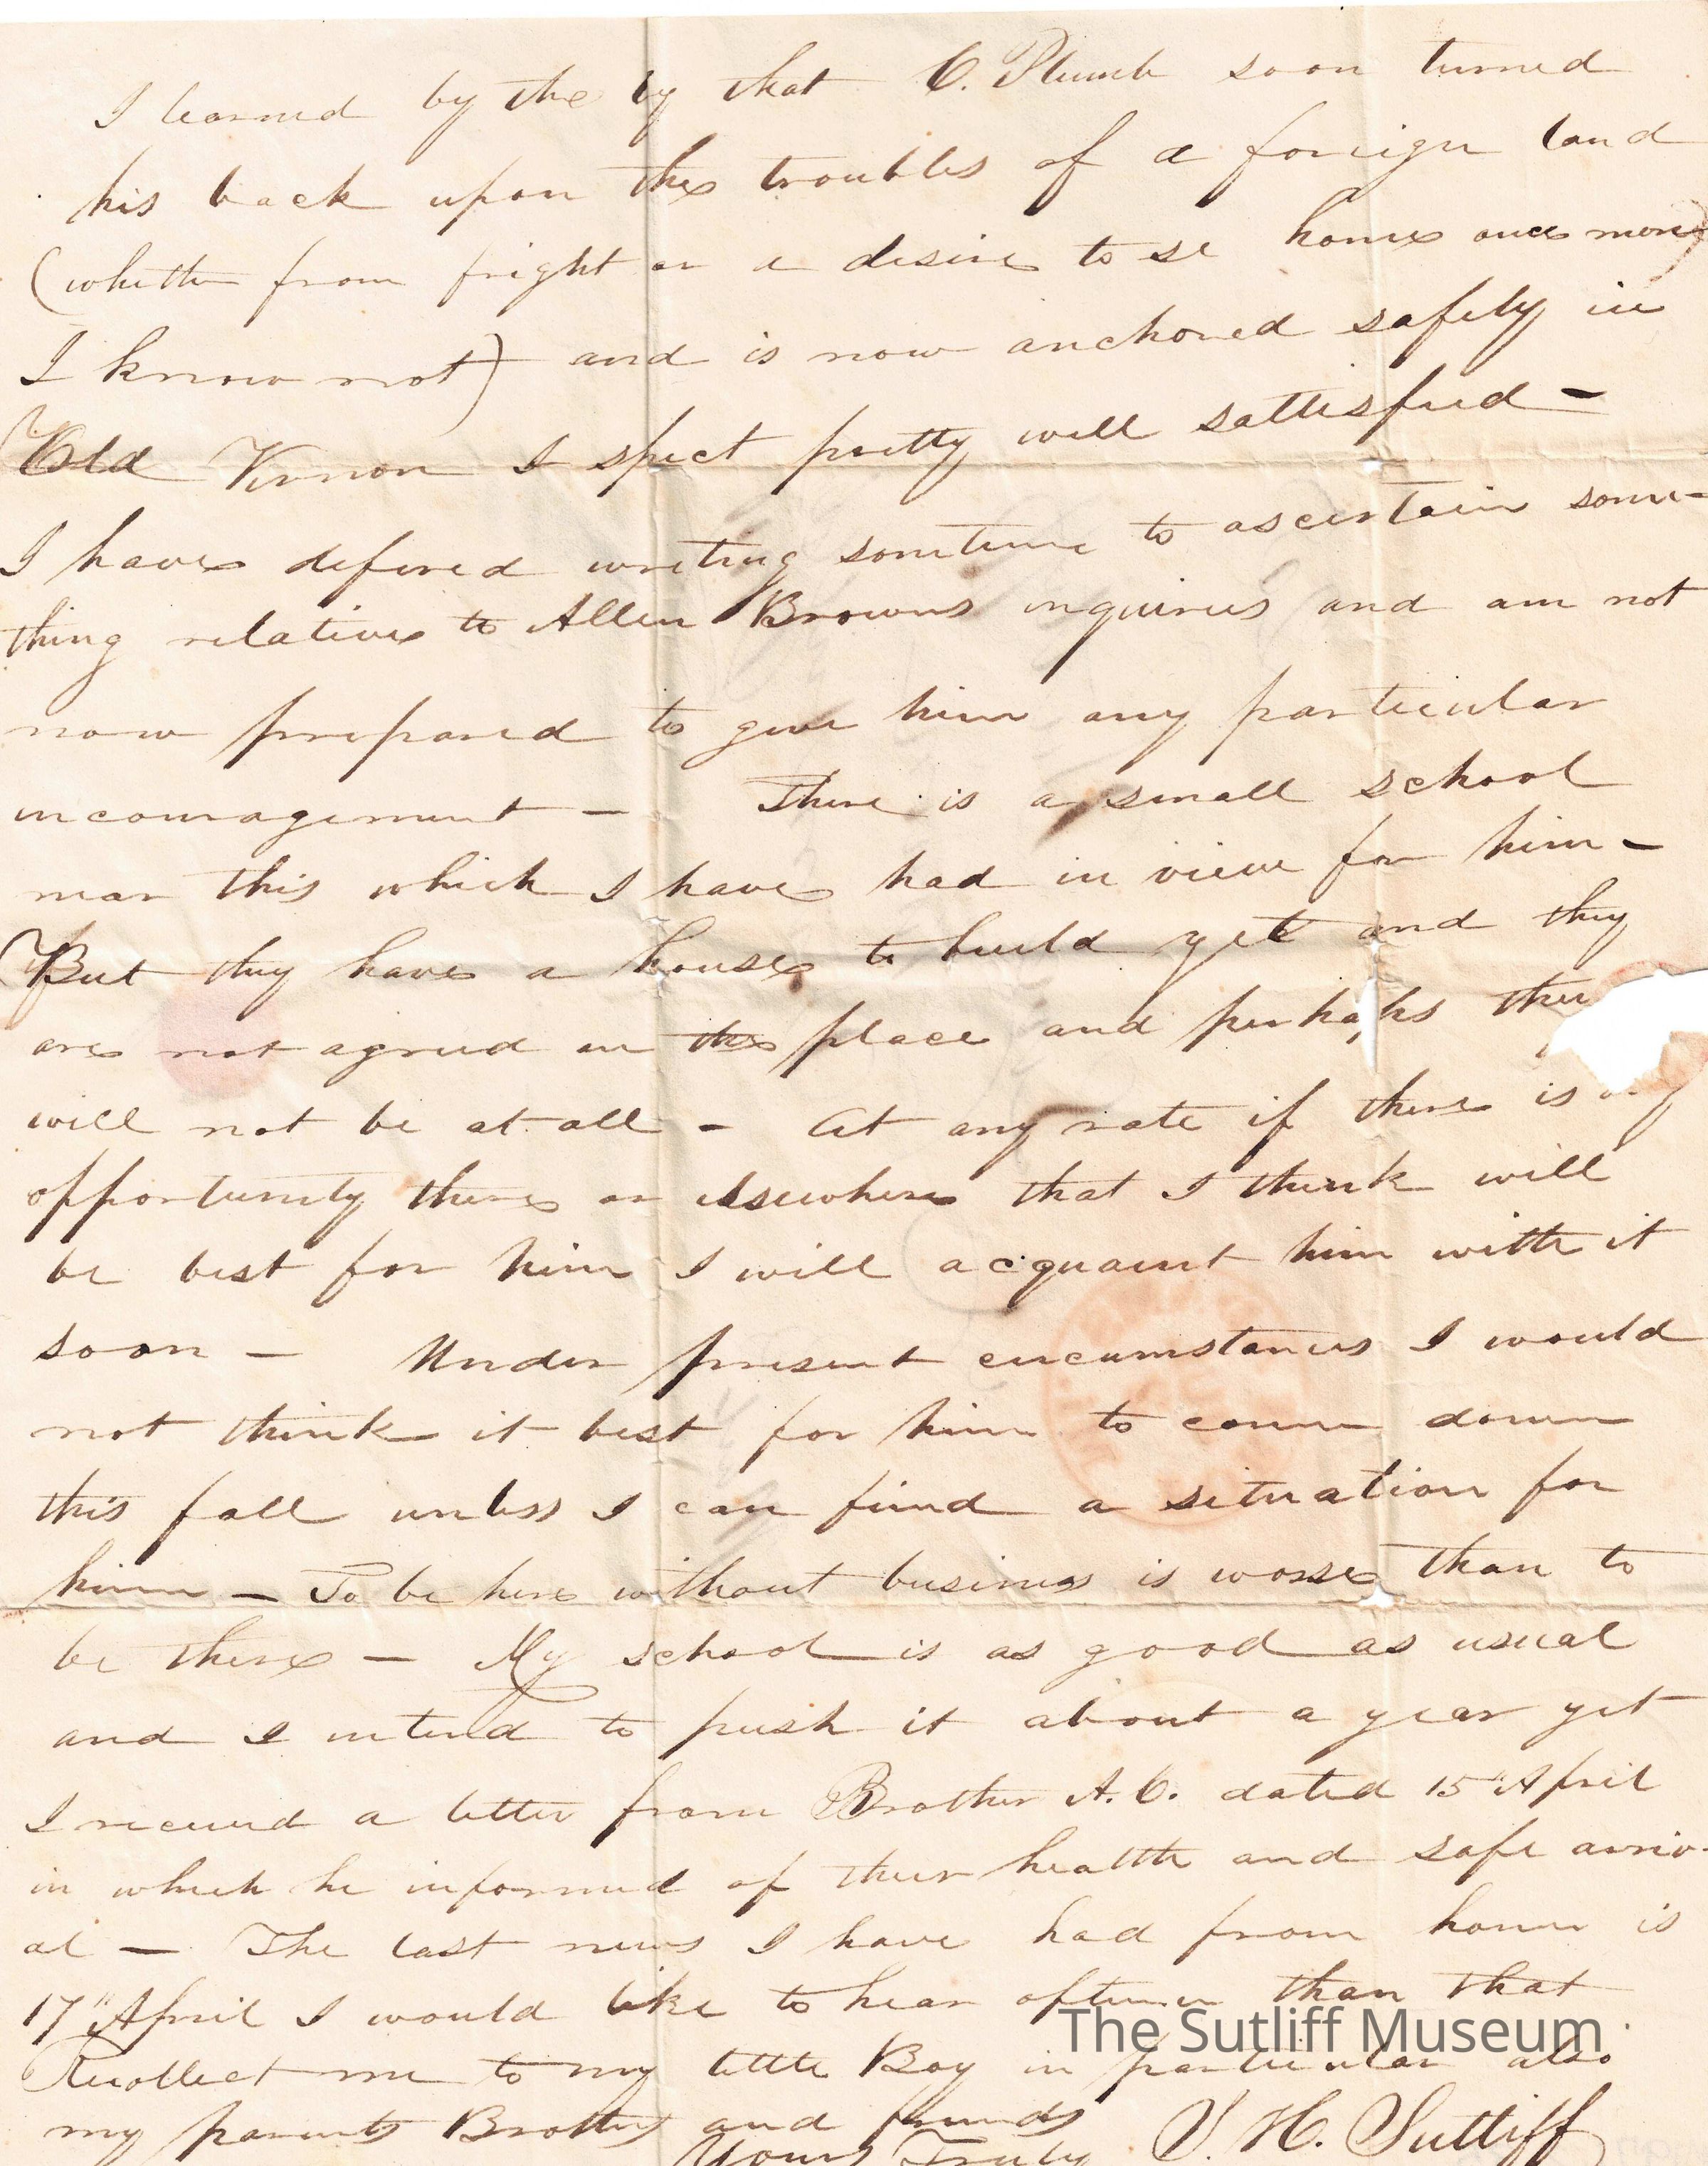 I learned by the by that C. Plumb soon turned
his back upon the troubles of a foreign land
(whether from fright or a desire to se home once more)
I know not) and is now anchored safely in
Old Vernon I spect pretty well sattisfied -
I have defered writing sometime to ascertain some-
thing relative to Allen Browns inquiries and am not
now prepared to give him any particular
incouragement - There is a small school
near this which I have had in view for him -
But they have a house to build yet and they
are not agreed on the place and perhaps
will not be at all - At any rate if there is any
opportunity there or elsewhere that I think will
be best for him I will acquaint him with it
soon - Under present circumstances I would
not think it best for him to come down
this fall unless I can find a situation for
him - To be here without business is worse than to
be there - My school is as good as usual
and I intend to push it about a year yet
I received a letter from Brother A.C. dated 15" April
in which he informed of their health and safe arriv-
al - The last news I have had from home is
17" April I would like to hear oftener than that
Recollect me to my little Boy in particular also
my parents Brothers and friends
Yours Truly S. H. Sutliff
The Sutliff Museum